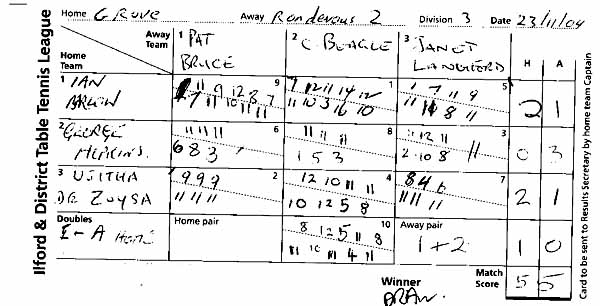 Ilford & District Table Tennis League
Home GROVE Away Rondevous 2 Division 3 Date 23/11/04
Away Team
Home Team
1 PAT BRUCE
2 C. BEAGLE
3 JANET LANGFORD
H A
1 IAN
9
1
5
11 9 12 8 7
7 11 10 11 11
7 12 11 14 12
11 10 3 16 10
1 7 11 9
8 11
2 1
2 GEORGE
6
8
3
11 11 11
6 8 3
11 11 11
1 5 3
11 12 11
2 10 8 11
0 3
3 USITHA DE ZOYSA
2
4
7
9 9 9
11 11 11
12 10 11 11
10 12 5 8
8 4 6
11 11 11
2 1
Doubles
Home pair
10
Away pair
8 12 5 11 8
11 10 11 4 11
1+2
1 0
Winner
DRAW.
Match Score
5 5
Card to be sent to Results Secretary by home team Captain